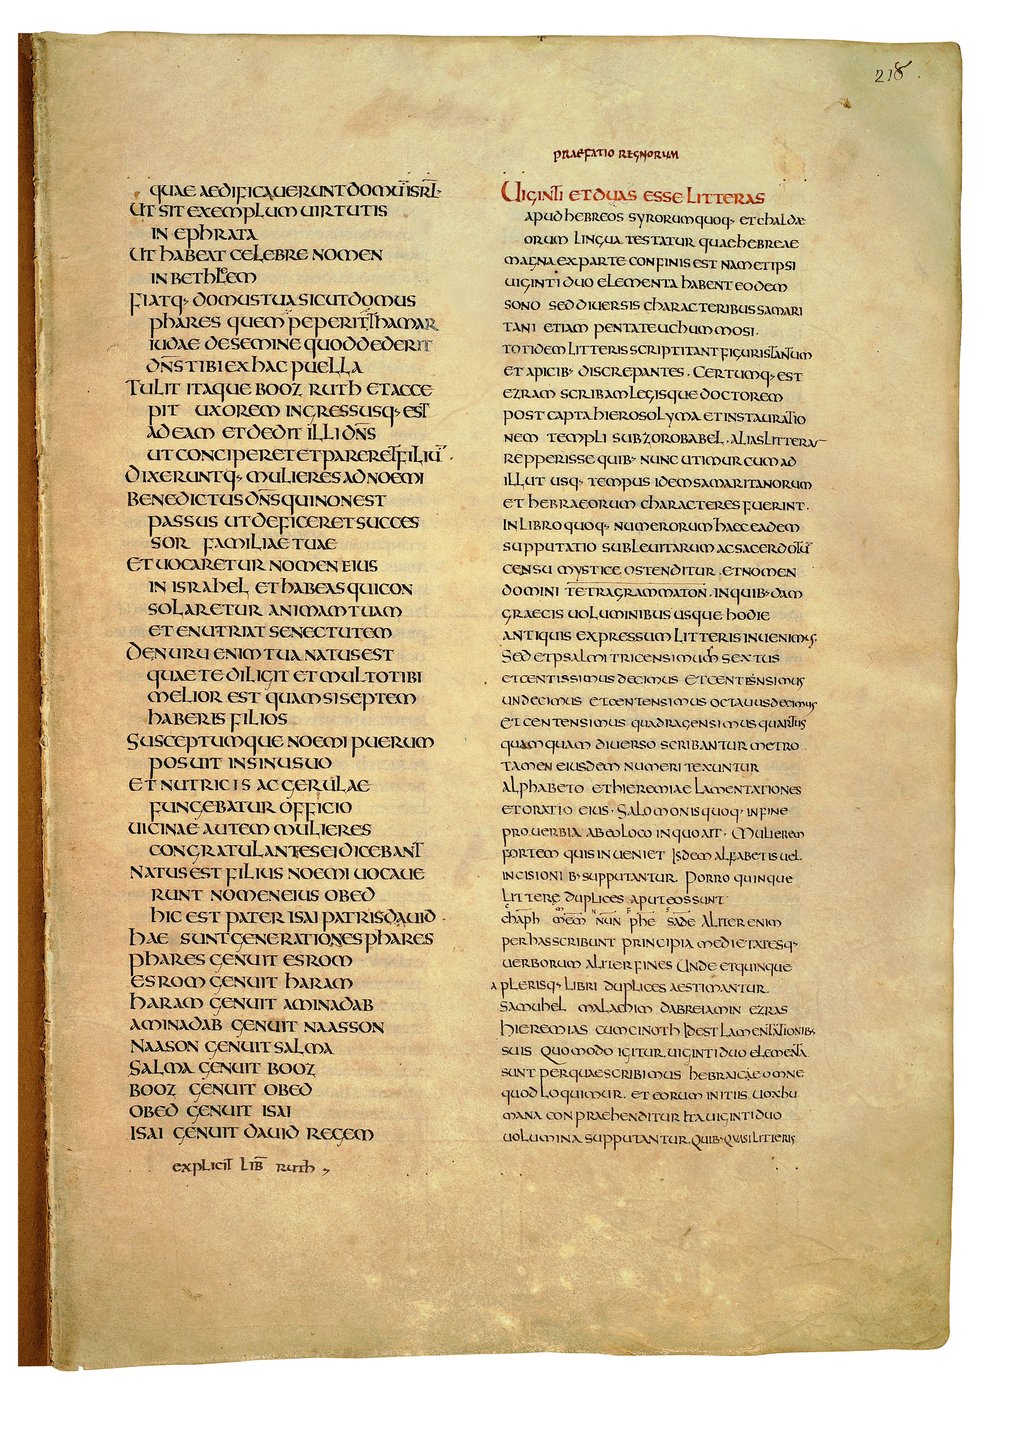 218
QUAE AEDIFICAUERUNT DOMUM ISRL
UT SIT EXEMPLUM UIRTUTIS
IN EPHRATA
UT HABEAT CELEBRE NOMEN
IN BETHLEEM
FIATQ· DOMUS TUA SICUT DOMUS
PHARES QUEM PEPERIT THAMAR
IUDAE DE SEMINE QUOD DEDERIT
DN̄S TIBI EX HAC PUELLA
TULIT ITAQUE BOOZ RUTH ET ACCE
PIT UXOREM INGRESSUSQ· EST
AD EAM ET DEDIT ILLI DN̄S
UT CONCIPERET ET PARERET FILIŪ
DIXERUNTQ· MULIERES AD NOEMI
BENEDICTUS DN̄S QUI NON EST
PASSUS UT DEFICERET SUCCES
SOR FAMILIAE TUAE
ET UOCARETUR NOMEN EIUS
IN ISRAHEL ET HABEAS QUI CON
SOLARETUR ANIMAM TUAM
ET ENUTRIAT SENECTUTEM
DE NURU ENIM TUA NATUS EST
QUAE TE DILIGIT ET MULTO TIBI
MELIOR EST QUAM SI SEPTEM
HABERIS FILIOS
SUSCEPTUMQUE NOEMI PUERUM
POSUIT IN SINU SUO
ET NUTRICIS AC GERULAE
FUNGEBATUR OFFICIO
UICINAE AUTEM MULIERES
CONGRATULANTES EI DICEBANT
NATUS EST FILIUS NOEMI UOCAUE
RUNT NOMEN EIUS OBED
HIC EST PATER ISAI PATRIS DAUID
HAE SUNT GENERATIONES PHARES
PHARES GENUIT ESROM
ESROM GENUIT HARAM
HARAM GENUIT AMINADAB
AMINADAB GENUIT NAASSON
NAASON GENUIT SALMA
SALMA GENUIT BOOZ
BOOZ GENUIT OBED
OBED GENUIT ISAI
ISAI GENUIT DAUID REGEM
EXPLICIT LIB̄ RUTH
PRAEFATIO REGNORUM
UIGINTI ET DUAS ESSE LITTERAS
APUD HEBREOS SYRORUM QUOQ· ET CHALDAE
ORUM LINGUA TESTATUR QUAE HEBREAE
MAGNA EX PARTE CONFINIS EST NAM ET IPSI
UIGINTI DUO ELEMENTA HABENT EODEM
SONO SED DIUERSIS CHARACTERIBUS SAMARI
TANI ETIAM PENTATEUCHUM MOSI·
TOTIDEM LITTERIS SCRIPTITANT FIGURIS TANTUM
ET APICIB· DISCREPANTES· CERTUMQ· EST
EZRAM SCRIBAM LEGISQUE DOCTOREM
POST CAPTA HIEROSOLYMA ET INSTAURATIO
NEM TEMPLI SUB ZOROBABEL· ALIAS LITTERAS
REPPERISSE QUIB· NUNC UTIMUR CUM AD
ILLUT USQ· TEMPUS IDEM SAMARITANORUM
ET HEBRAEORUM CHARACTERES FUERINT·
IN LIBRO QUOQ· NUMERORUM HAEC EADEM
SUPPUTATIO SUB LEUITARUM AC SACERDOTŪ
CENSU MYSTICE OSTENDITUR· ET NOMEN
DOMINI TETRAGRAMMATON· IN QUIB·DAM
GRAECIS UOLUMINIBUS USQUE HODIE
ANTIQUIS EXPRESSUM LITTERIS INUENIMUS·
SED ET PSALMI TRICENSIMUS SEXTUS
ET CENTISSIMUS DECIMUS ET CENTISNSIMUS
UNDECIMUS ET CENTENSIMUS OCTAUUS DECIMUS
ET CENTENSIMUS QUADRAGENSIMUS QUARTUS
QUAMQUAM DIUERSO SCRIBANTUR METRO
TAMEN EIUSDEM NUMERI TEXUNTUR
ALPHABETO ET HIEREMIAE LAMENTATIONES
ET ORATIO EIUS· SALOMONIS QUOQ· IN FINE
PROUERBIA AB EO LOCO IN QUO AIT· MULIEREM
FORTEM QUIS INUENIET ISDEM ALFABETIS UEL
INCISIONIB· SUPPUTANTUR· PORRO QUINQUE
LITTERE DUPLICES APUT EOS SUNT
CHAPH MEM NUN PHE SADE ALITER ENIM
PER HAS SCRIBUNT PRINCIPIA MEDIETATESQ·
UERBORUM ALITER FINES UNDE ET QUINQUE
A PLERISQ· LIBRI DUPLICES AESTIMANTUR·
SAMUHEL MALACHIM DABREIAMIN EZRAS
HIEREMIAS CUM CINOTH IDEST LAMENTATIONIB·
SUIS QUOMODO IGITUR UIGINTI DUO ELEMENTA
SUNT PER QUAE SCRIBIMUS HEBRAICAE OMNE
QUOD LOQUIMUR· ET EORUM INITIIS UOX HU
MANA CONPRAEHENDITUR ITA UIGINTI DUO
UOLUMINA SUPPUTANTUR QUIB· QUASI LITTERIS